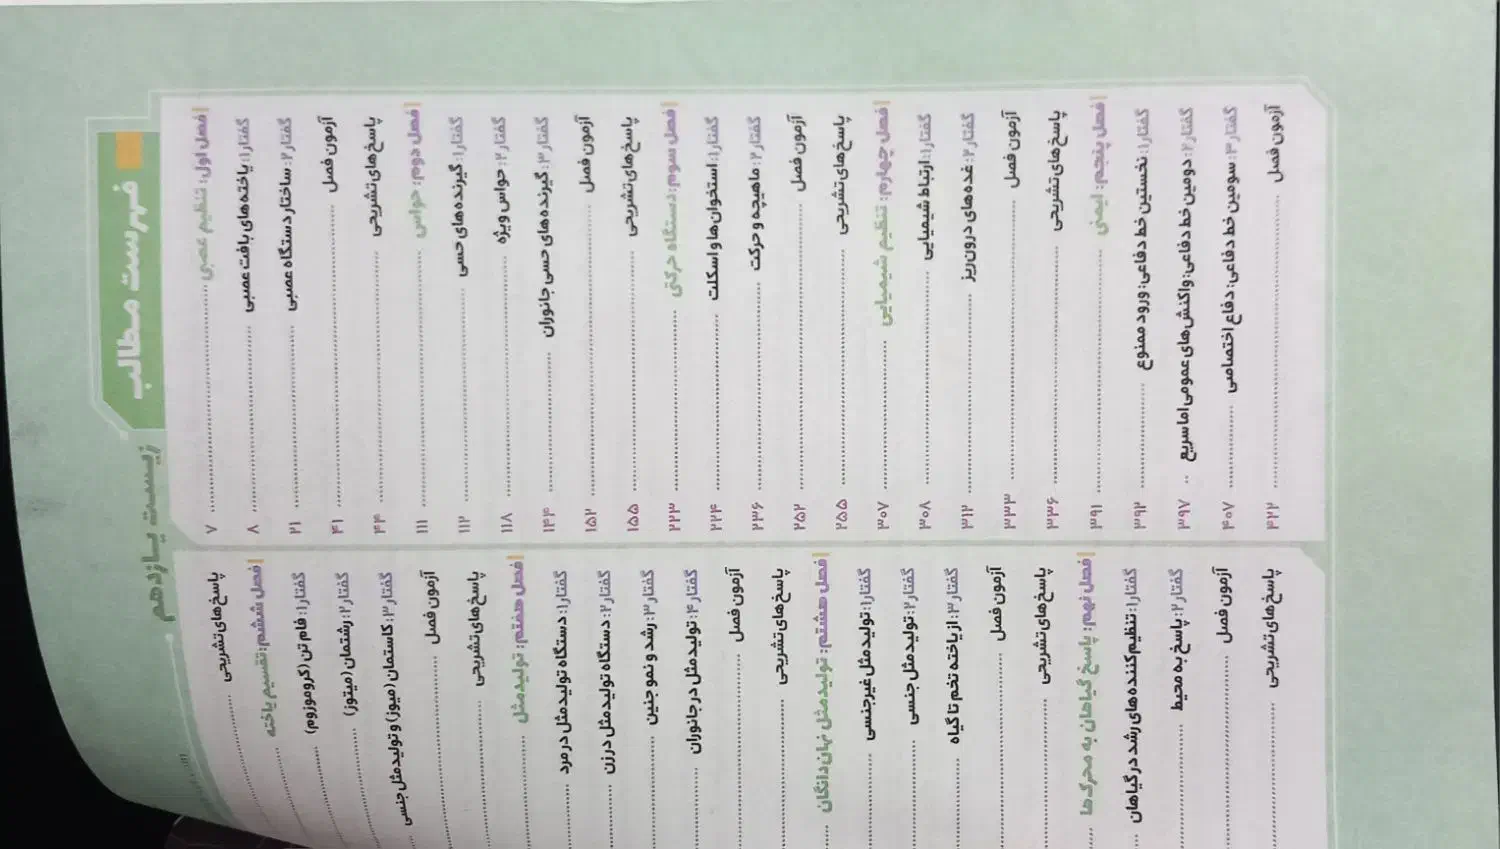 فهرست مطالب
زیست یازدهم
فصل اول: تنظیم عصبی ........ ۷
گفتار۱: یاخته‌های بافت عصبی ........ ۸
گفتار۲: ساختار دستگاه عصبی ........ ۲۱
آزمون فصل ........ ۴۱
پاسخ‌های تشریحی ........ ۴۴
فصل دوم: حواس ........ ۱۱۱
گفتار۱: گیرنده‌های حسی ........ ۱۱۲
گفتار۲: حواس ویژه ........ ۱۱۸
گفتار۳: گیرنده‌های حسی جانوران ........ ۱۴۴
آزمون فصل ........ ۱۵۲
پاسخ‌های تشریحی ........ ۱۵۵
فصل سوم: دستگاه حرکتی ........ ۲۲۳
گفتار۱: استخوان‌ها و اسکلت ........ ۲۲۴
گفتار۲: ماهیچه و حرکت ........ ۲۳۶
آزمون فصل ........ ۲۵۲
پاسخ‌های تشریحی ........ ۲۵۵
فصل چهارم: تنظیم شیمیایی ........ ۳۰۷
گفتار۱: ارتباط شیمیایی ........ ۳۰۸
گفتار۲: غده‌های درون‌ریز ........ ۳۱۲
آزمون فصل ........ ۳۳۳
پاسخ‌های تشریحی ........ ۳۳۶
فصل پنجم: ایمنی ........ ۳۹۱
گفتار۱: نخستین خط دفاعی: ورود ممنوع ........ ۳۹۲
گفتار۲: دومین خط دفاعی: واکنش‌های عمومی اما سریع .. ۳۹۷
گفتار۳: سومین خط دفاعی: دفاع اختصاصی ........ ۴۰۷
آزمون فصل ........ ۴۲۲
پاسخ‌های تشریحی ........
فصل ششم: تقسیم یاخته ........
گفتار۱: فام‌تن (کروموزوم) ........
گفتار۲: رشتمان (میتوز) ........
گفتار۳: کاستمان (میوز) و تولیدمثل جنسی ...
آزمون فصل ........
پاسخ‌های تشریحی ........
فصل هفتم: تولیدمثل ........
گفتار۱: دستگاه تولیدمثل در مرد ........
گفتار۲: دستگاه تولیدمثل در زن ........
گفتار۳: رشد و نمو جنین ........
گفتار۴: تولیدمثل در جانوران ........
آزمون فصل ........
پاسخ‌های تشریحی ........
فصل هشتم: تولیدمثل نهان‌دانگان ...
گفتار۱: تولیدمثل غیرجنسی ........
گفتار۲: تولیدمثل جنسی ........
گفتار۳: از یاخته تخم تا گیاه ........
آزمون فصل ........
پاسخ‌های تشریحی ........
فصل نهم: پاسخ گیاهان به محرک‌ها ...
گفتار۱: تنظیم‌کننده‌های رشد در گیاهان ...
گفتار۲: پاسخ به محیط ........
آزمون فصل ........
پاسخ‌های تشریحی ........